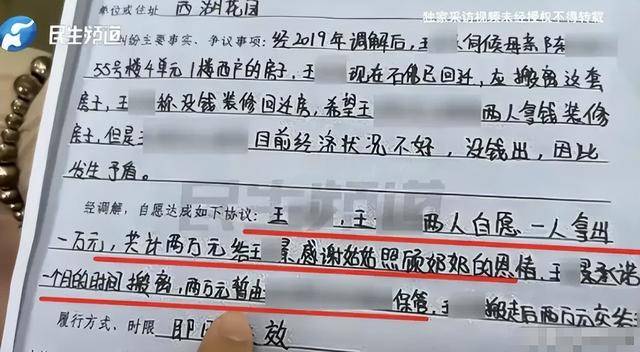 独家采访视频未经授权不得转载
民生频道
单位或住址 西湖花园
纠纷主要事实、争议事项: 经2019年调解后,王 伺候母亲陈
55号楼4单元1楼西户的房子,王 现在不能已回迁,应搬离这套
房子,王 称没钱装修回迁房,希望王 两人拿钱装修
房子,但是王 目前经济状况不好,没钱出,因此
发生矛盾。
民生频道
经调解,自愿达成如下协议: 王 ,王 两人自愿一人拿出
一万元,共计两万元给王 灵感谢姑姑照顾奶奶的恩情,王 灵承诺
一个月的时间搬离,两万元暂由 保管,王 搬走后两万元交给
履行方式、时限 即 效